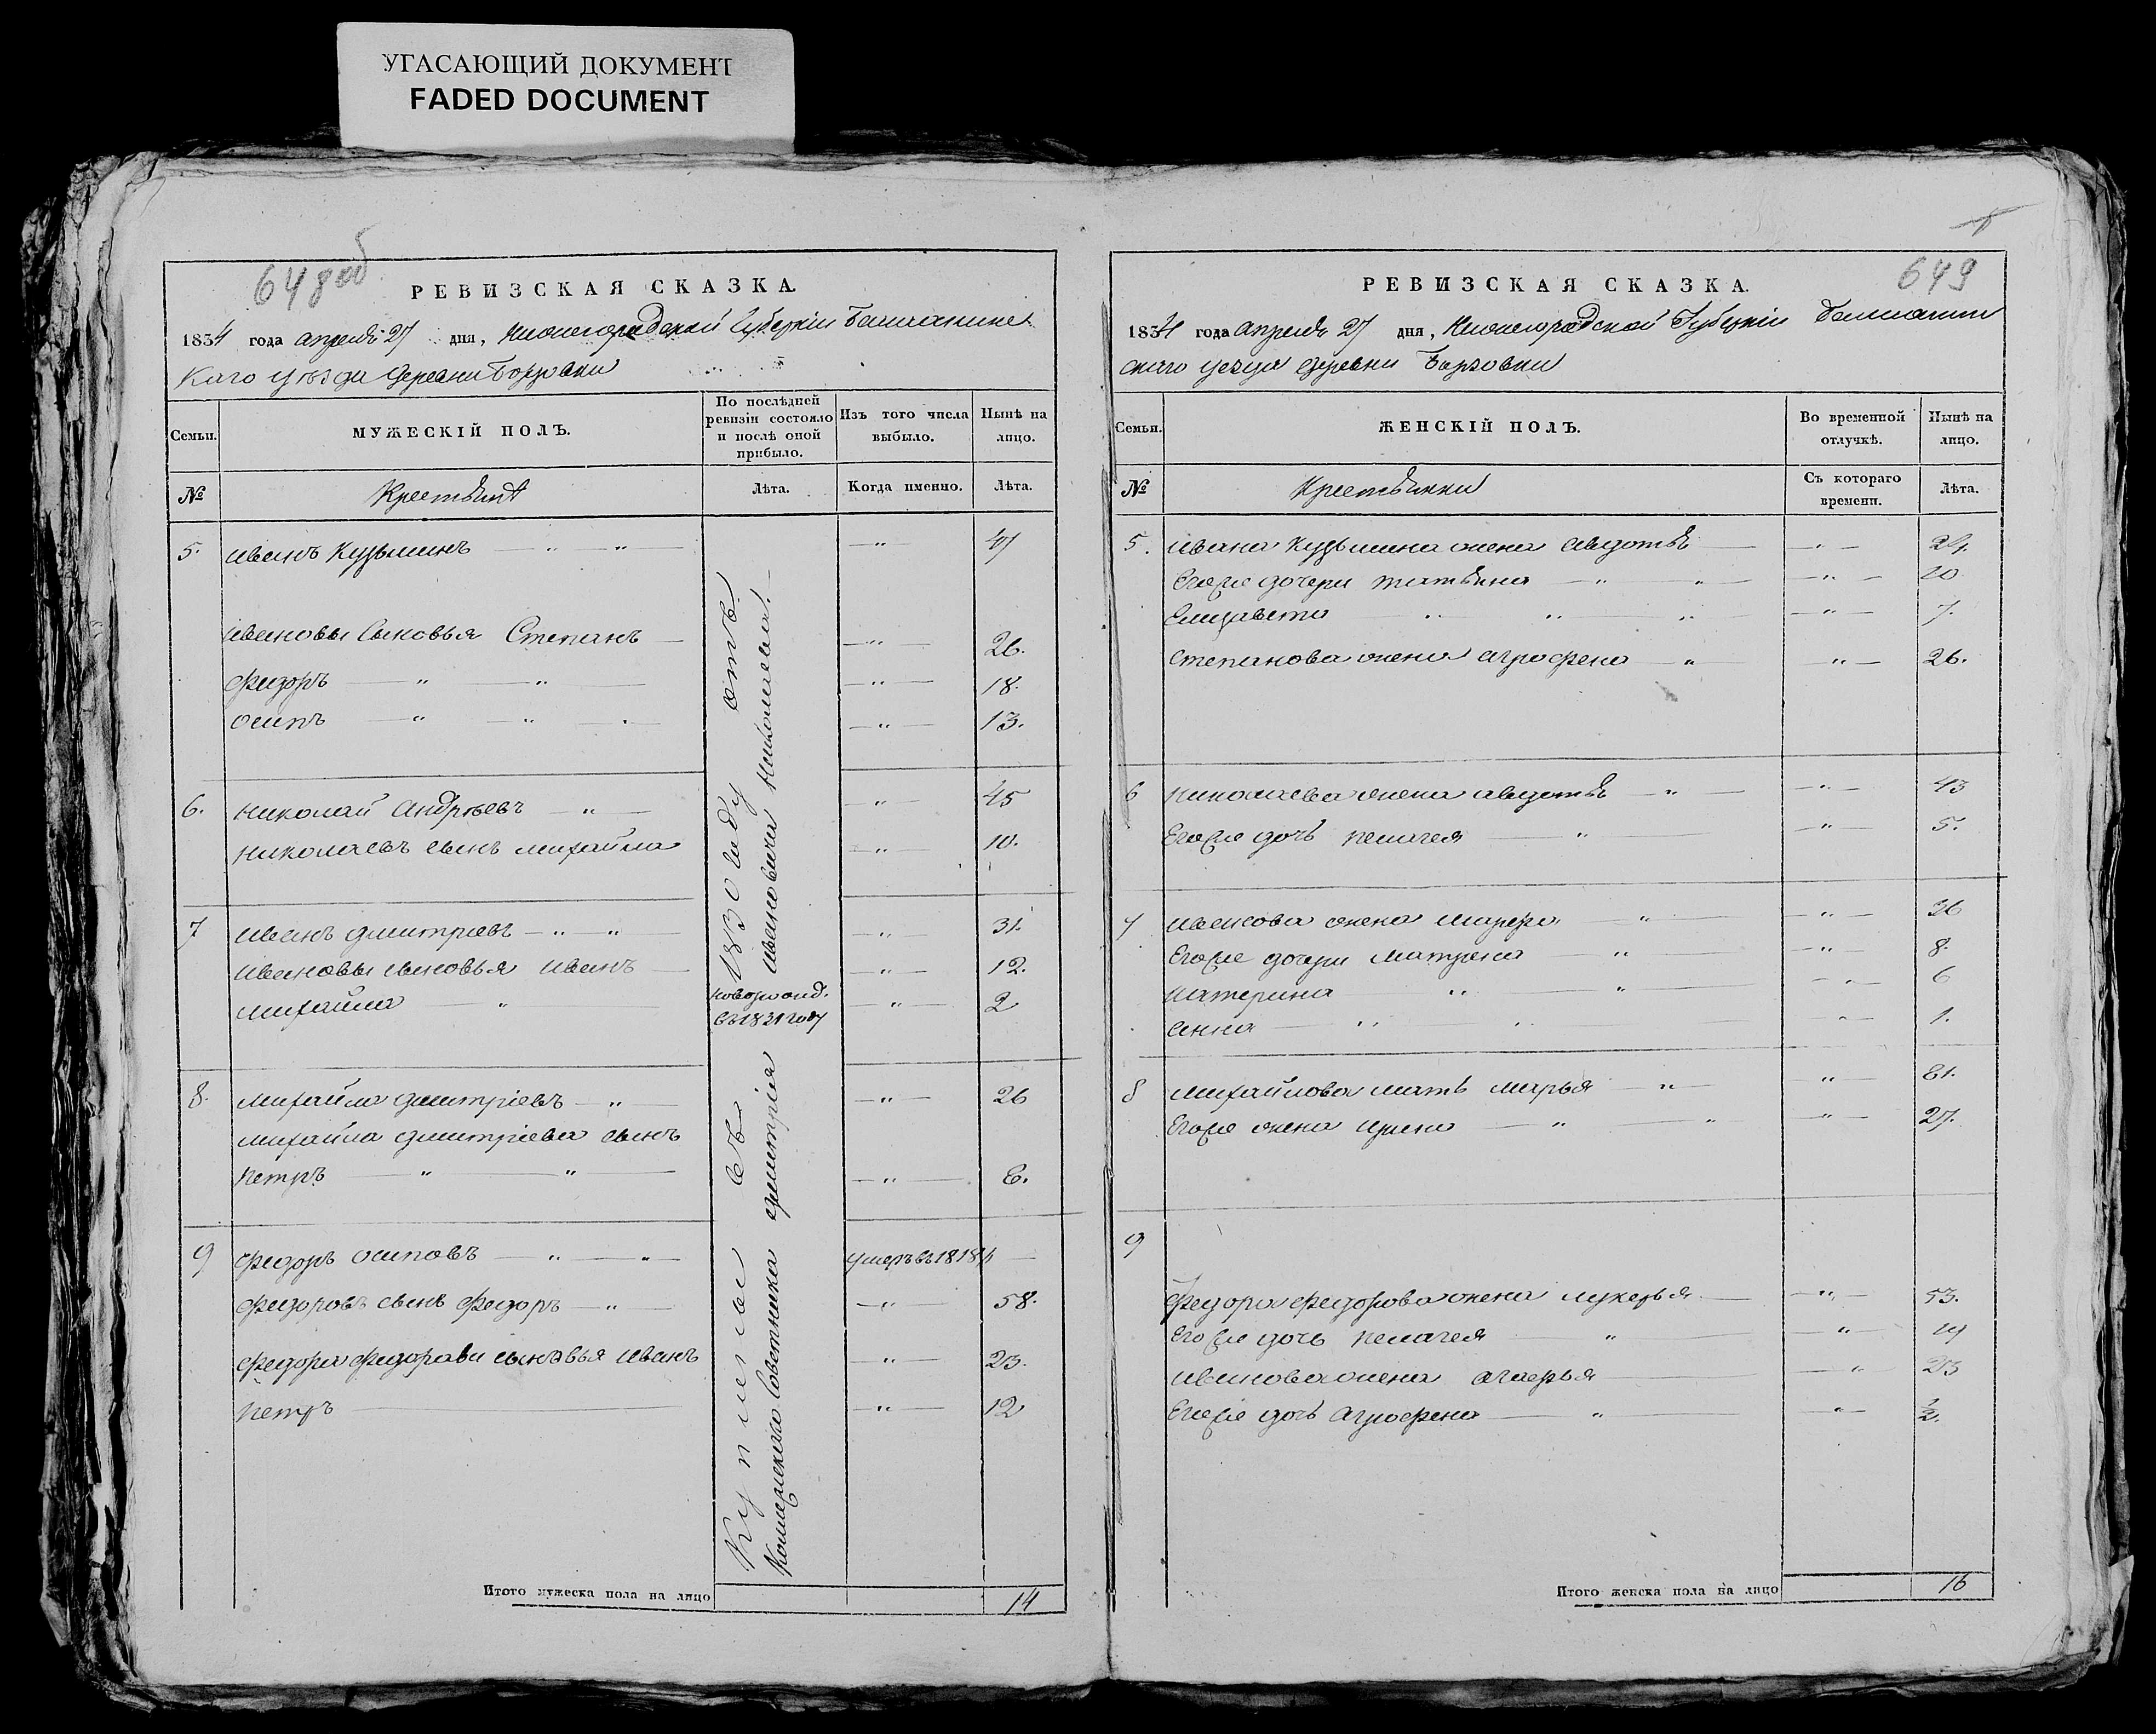 УГАСАЮЩИЙ ДОКУМЕНТ
FADED DOCUMENT
648об
РЕВИЗСКАЯ СКАЗКА.
1834 года апреля 27 дня, Нижегородской Губернии Балахнинс
каго уѣзда деревни
Семьи.
МУЖЕСКІЙ ПОЛЪ.
По послѣдней ревизіи состояло и послѣ оной прибыло.
Изъ того числа выбыло.
Нынѣ на лицо.
№
Крестьяне
Лѣта.
Когда именно.
Лѣта.
5. Иванъ Кузьминъ — " — " — — " — 47
Ивановы сыновья Степанъ — — " — 26.
Федоръ — " — " — — " — 18.
Осипъ — " — " — — " — 13.
6. Николай Андреевъ — " — " 45
Николаевъ сынъ Михайла — " — 10.
7 Иванъ Дмитріевъ — " — " — — " — 31.
Ивановы сыновья Иванъ — — " — 12.
Михайла — " — новорожд. въ 1831 году — " — 2
8. Михайла Дмитріевъ — " — — " — 26
Михайла Дмитріева сынъ
Петръ — " — " — — " — 6.
9 Федоръ Осиповъ — " — " — умеръ въ 1818 —
Федоровъ сынъ Федоръ — " — — " — 58.
Федора Федорова сыновья Иванъ — " — 23.
Петръ — — " — 12
Куплены въ 1830 году отъ
Комерческаго Советника Дмитрія Ивановича
Итого мужеска пола на лицо 14
649
РЕВИЗСКАЯ СКАЗКА.
1834 года апреля 27 дня, Нижегородской Губернии Балахнин
скаго уезда деревни
Семьи.
ЖЕНСКІЙ ПОЛЪ.
Во временной отлучкѣ.
Нынѣ на лицо.
№
Крестьянки
Съ котораго времени.
Лѣта.
5. Ивана Кузьмина жена Авдотья — — " —
Егоже дочери Татьяна — " — " — — " — 20
Елизавета — " — " — " — — " — 7.
Степанова жена Аграфена — " — " — 26.
6 Николаева жена Авдотья — " — — " — 43
Егоже дочь Пелагея — " — — " — 5.
7 Иванова жена Марфа — " — — " — 36
Егоже дочери Матрена — " — — " — 8.
Катерина — " — " — — " — 6
Анна — " — " — — " — 1.
8 Михайлова мать Марья — " — — " — 61.
Егоже жена Ирина — " — " — " — 27.
9
Федора Федорова жена Лукерья — — " — 53.
Егоже дочь Пелагея — " — " — 19
Иванова жена — — " 23
Егоже дочь Аграфена — " — " — ½.
Итого женска пола на лицо 16